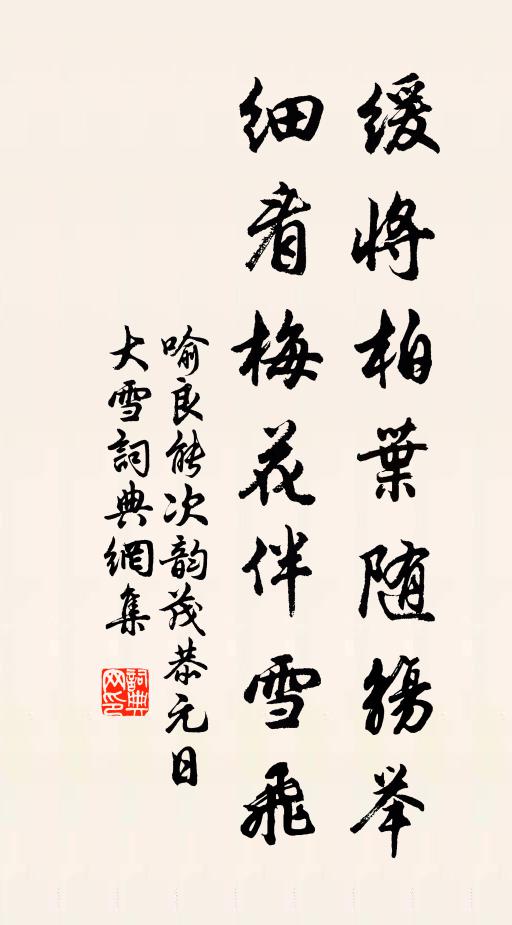 缓將柏葉随觴举
细看梅花伴雪飛
喻良能次韵茂恭元日
大雪詞典網集
詞典网印